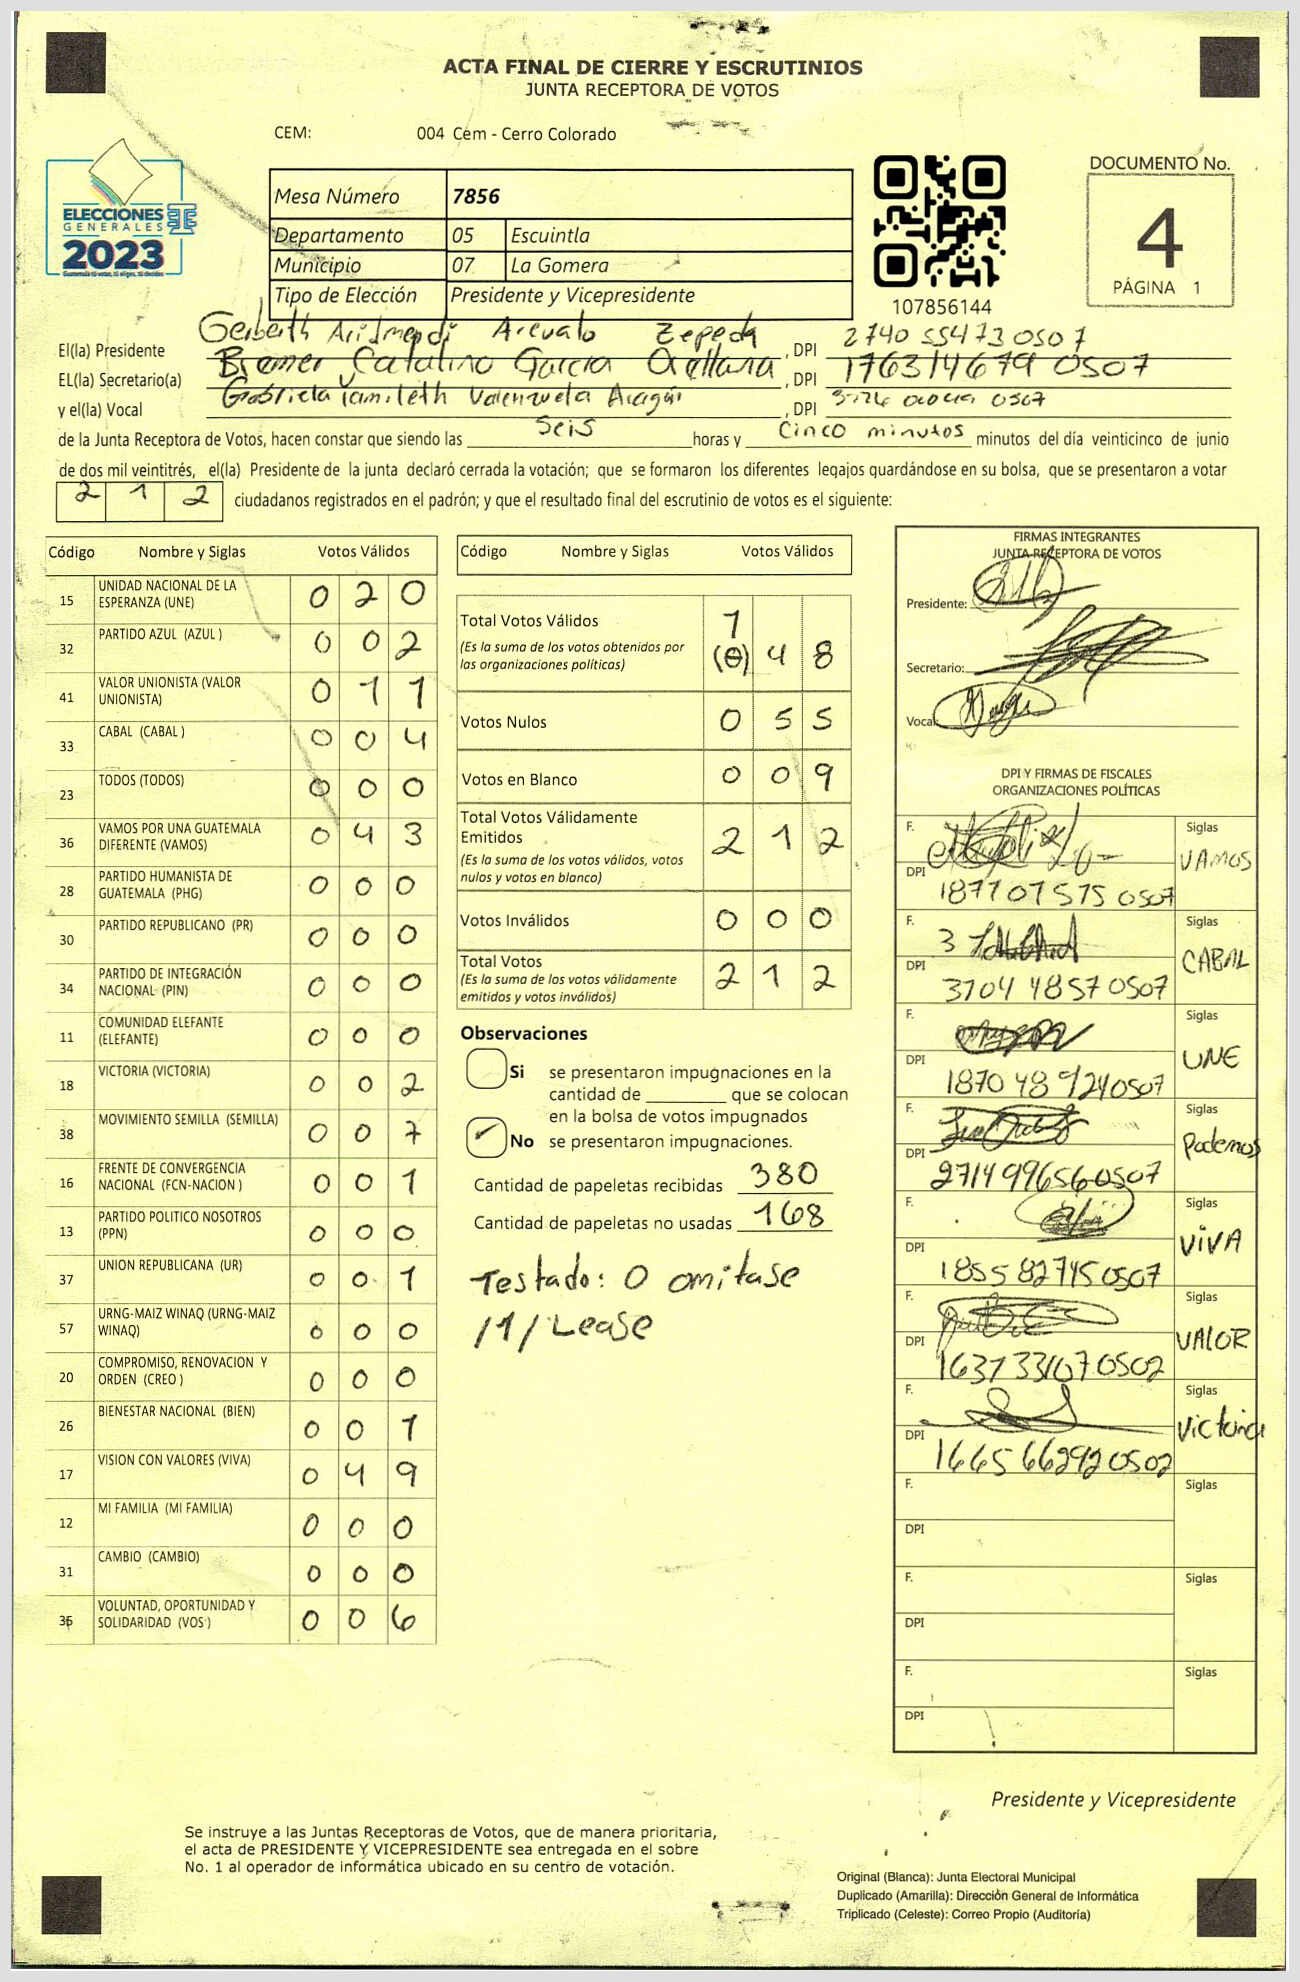 ACTA FINAL DE CIERRE Y ESCRUTINIOS
JUNTA RECEPTORA DE VOTOS
CEM: 004 Cem - Cerro Colorado
ELECCIONES
GENERALES
2023
Mesa Número 7856
Departamento 05 Escuintla
Municipio 07 La Gomera
Tipo de Elección Presidente y Vicepresidente
107856144
DOCUMENTO No.
4
PÁGINA 1
El(la) Presidente Arevalo Zepeda , DPI 2740 55473 0507
EL(la) Secretario(a) Catalino Garcia Orellana , DPI 1763146790507
y el(la) Vocal Gabriela Yamileth Valenzuela , DPI 0507
de la Junta Receptora de Votos, hacen constar que siendo las Seis horas y Cinco minutos minutos del día veinticinco de junio
de dos mil veintitrés, el(la) Presidente de la junta declaró cerrada la votación; que se formaron los diferentes legajos quardándose en su bolsa, que se presentaron a votar
2 1 2 ciudadanos registrados en el padrón; y que el resultado final del escrutinio de votos es el siguiente:
Código Nombre y Siglas Votos Válidos
15 UNIDAD NACIONAL DE LA ESPERANZA (UNE) 0 2 0
32 PARTIDO AZUL (AZUL ) 0 0 2
41 VALOR UNIONISTA (VALOR UNIONISTA) 0 1 1
33 CABAL (CABAL ) 0 0 4
23 TODOS (TODOS) 0 0 0
36 VAMOS POR UNA GUATEMALA DIFERENTE (VAMOS) 0 4 3
28 PARTIDO HUMANISTA DE GUATEMALA (PHG) 0 0 0
30 PARTIDO REPUBLICANO (PR) 0 0 0
34 PARTIDO DE INTEGRACIÓN NACIONAL (PIN) 0 0 0
11 COMUNIDAD ELEFANTE (ELEFANTE) 0 0 0
18 VICTORIA (VICTORIA) 0 0 2
38 MOVIMIENTO SEMILLA (SEMILLA) 0 0 7
16 FRENTE DE CONVERGENCIA NACIONAL (FCN-NACION ) 0 0 1
13 PARTIDO POLITICO NOSOTROS (PPN) 0 0 0
37 UNION REPUBLICANA (UR) 0 0 1
57 URNG-MAIZ WINAQ (URNG-MAIZ WINAQ) 0 0 0
20 COMPROMISO, RENOVACION Y ORDEN (CREO ) 0 0 0
26 BIENESTAR NACIONAL (BIEN) 0 0 1
17 VISION CON VALORES (VIVA) 0 4 9
12 MI FAMILIA (MI FAMILIA) 0 0 0
31 CAMBIO (CAMBIO) 0 0 0
VOLUNTAD, OPORTUNIDAD Y SOLIDARIDAD (VOS ) 0 0 6
Código Nombre y Siglas Votos Válidos
Total Votos Válidos 1
(Es la suma de los votos obtenidos por las organizaciones políticas) (0) 4 8
Votos Nulos 0 5 5
Votos en Blanco 0 0 9
Total Votos Válidamente Emitidos 2 1 2
(Es la suma de los votos válidos, votos nulos y votos en blanco)
Votos Inválidos 0 0 0
Total Votos 2 1 2
(Es la suma de los votos válidamente emitidos y votos inválidos)
Observaciones
Si se presentaron impugnaciones en la
cantidad de ________ que se colocan
en la bolsa de votos impugnados
No se presentaron impugnaciones.
Cantidad de papeletas recibidas 380
Cantidad de papeletas no usadas 168
Testado: 0 omitase
/1/ Lease
FIRMAS INTEGRANTES
JUNTA RECEPTORA DE VOTOS
Presidente:
Secretario:
Vocal:
DPI Y FIRMAS DE FISCALES
ORGANIZACIONES POLÍTICAS
F. Siglas
DPI 187707575 0507 VAMOS
F. Siglas
DPI 3704 48570507 CABAL
F. Siglas
DPI 1870 489240507 UNE
F. Siglas
DPI 2714996560507 Podemos
F. Siglas
DPI 1855827450507 VIVA
F. Siglas
DPI 1637331070502 VALOR
F. Siglas
DPI 1665662920502 Victoria
F. Siglas
DPI
F. Siglas
DPI
F. Siglas
DPI
Presidente y Vicepresidente
Se instruye a las Juntas Receptoras de Votos, que de manera prioritaria,
el acta de PRESIDENTE Y VICEPRESIDENTE sea entregada en el sobre
No. 1 al operador de informática ubicado en su centro de votación.
Original (Blanca): Junta Electoral Municipal
Duplicado (Amarilla): Dirección General de Informática
Triplicado (Celeste): Correo Propio (Auditoría)